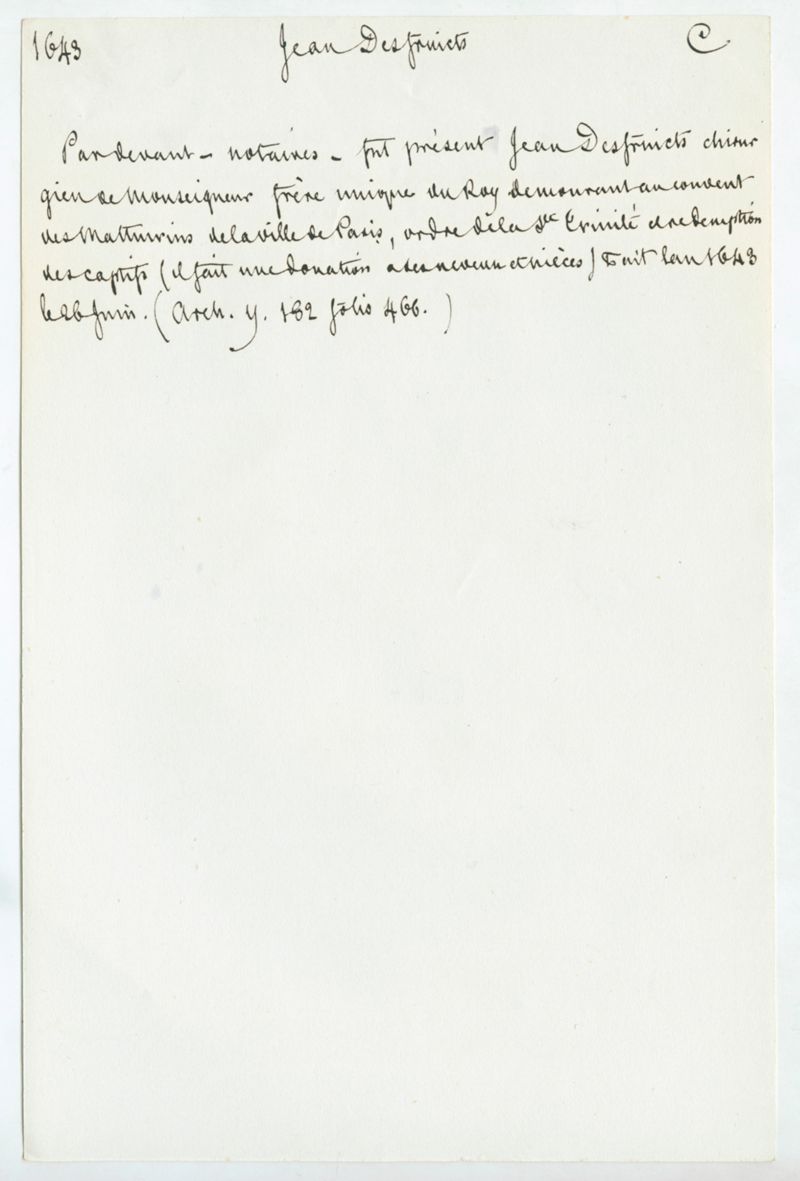 1643 Jean Desfruicts C
Par devant – notaires – fut présent Jean Desfruicts chirur
gien de Monseigneur frère unique du Roy demourant au couvent
des Mathurins de la ville de Paris, ordre de la Ste Trinité et redemption
des captifs (il fait une donation a ses neveux et nièces) Fait lan 1643
le 26 Juin. (Arch. Y. 182 folio 466.)